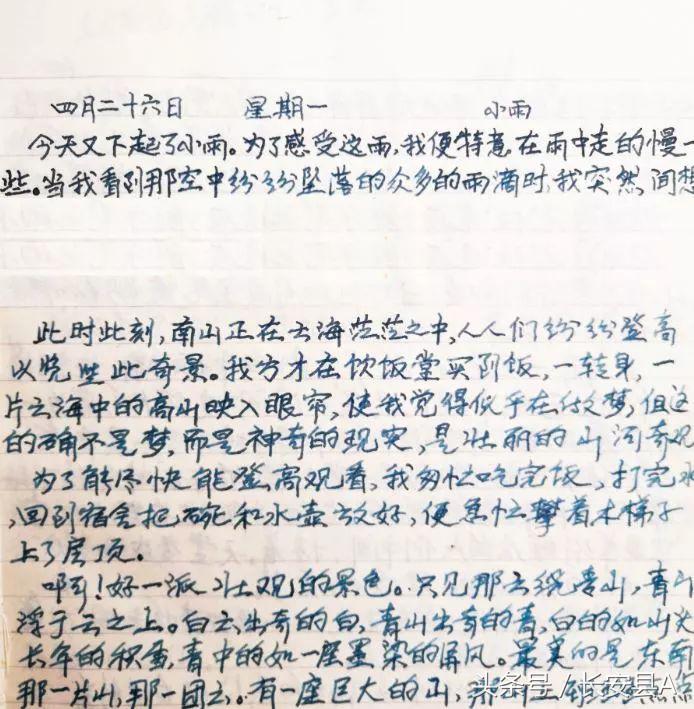 四月二十六日 星期一 小雨
今天又下起了小雨。为了感受这雨,我便特意在雨中走的慢一
些。当我看到那空中纷纷坠落的众多的雨滴时,我突然间想
此时此刻,南山正在云海茫茫之中,人人们纷纷登高
以览此奇景。我方才在饮饭堂买到饭,一转身,一
片云海中的高山映入眼帘,使我觉得似乎在做梦,但这
的确不是梦,而是神奇的现实,是壮丽的山河奇观
为了能尽快能登高观看,我匆忙吃完饭,打完水
,回到宿舍把碗和水壶放好,便急忙攀着木梯子
上了房顶。
啊!好一派壮观的景色。只见那云绕青山,青山
浮于云之上。白云出奇的白,青山出奇的青,白的如山尖
长年的积雪,青中的如一层墨染的屏风。最美的是东南
那一片山,那一团云。有一座巨大的山,
头条号/长安县A